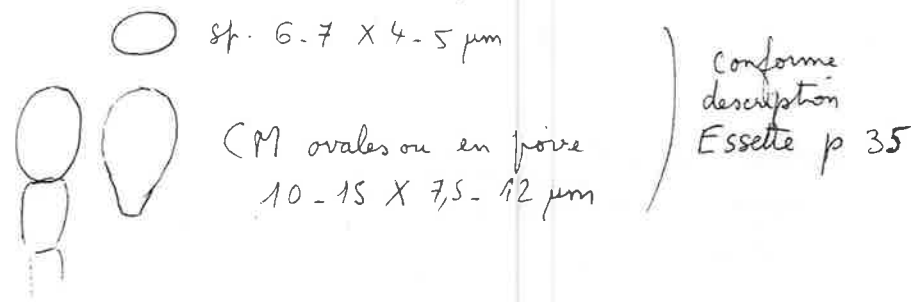 sp. 6-7 X 4-5 µm
CM ovales ou en poire
10-15 X 7,5-12 µm
Conforme
description
Essette p 35